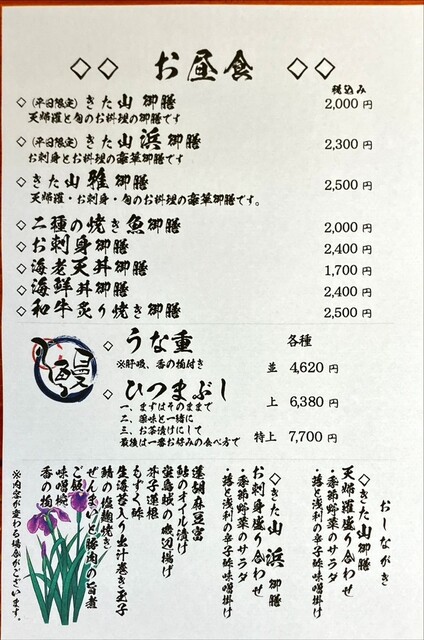 ◇◇ お昼食 ◇◇
税込み
◇(平日限定)きた山 御膳 2,000円
天婦羅と旬のお料理の御膳です
◇(平日限定)きた山 浜 御膳 2,300円
お刺身とお料理の豪華御膳です
◇きた山 雅 御膳 2,500円
天婦羅・お刺身・旬のお料理の豪華御膳です。
◇二種の焼き魚御膳 2,000円
◇お刺身御膳 2,400円
◇海老天丼御膳 1,700円
◇海鮮丼御膳 2,400円
◇和牛炙り焼き御膳 2,500円
鰻
◇うな重 各種
※肝吸、香の物付き
並 4,620円
◇ひつまぶし
上 6,380円
一、まずはそのままで
二、薬味と一緒に
三、お茶漬けにして
特上 7,700円
最後は一番お好みの食べ方で
おしながき
◇きた山御膳
天婦羅盛り合わせ
・季節野菜のサラダ
・蕗と浅利の辛子酢味噌掛け
◇きた山 浜 御膳
お刺身盛り合わせ
・季節野菜のサラダ
・蕗と浅利の辛子酢味噌掛け
蓬胡麻豆富
鮎のオイル漬け
蛍烏賊の磯辺揚げ
芥子蓮根
もずく酢
生海苔入り出汁巻き玉子
鯖の塩麹焼き
ぜんまいと豚肉の旨煮
ご飯
味噌椀
香の物
※内容が変わる場合がございます。